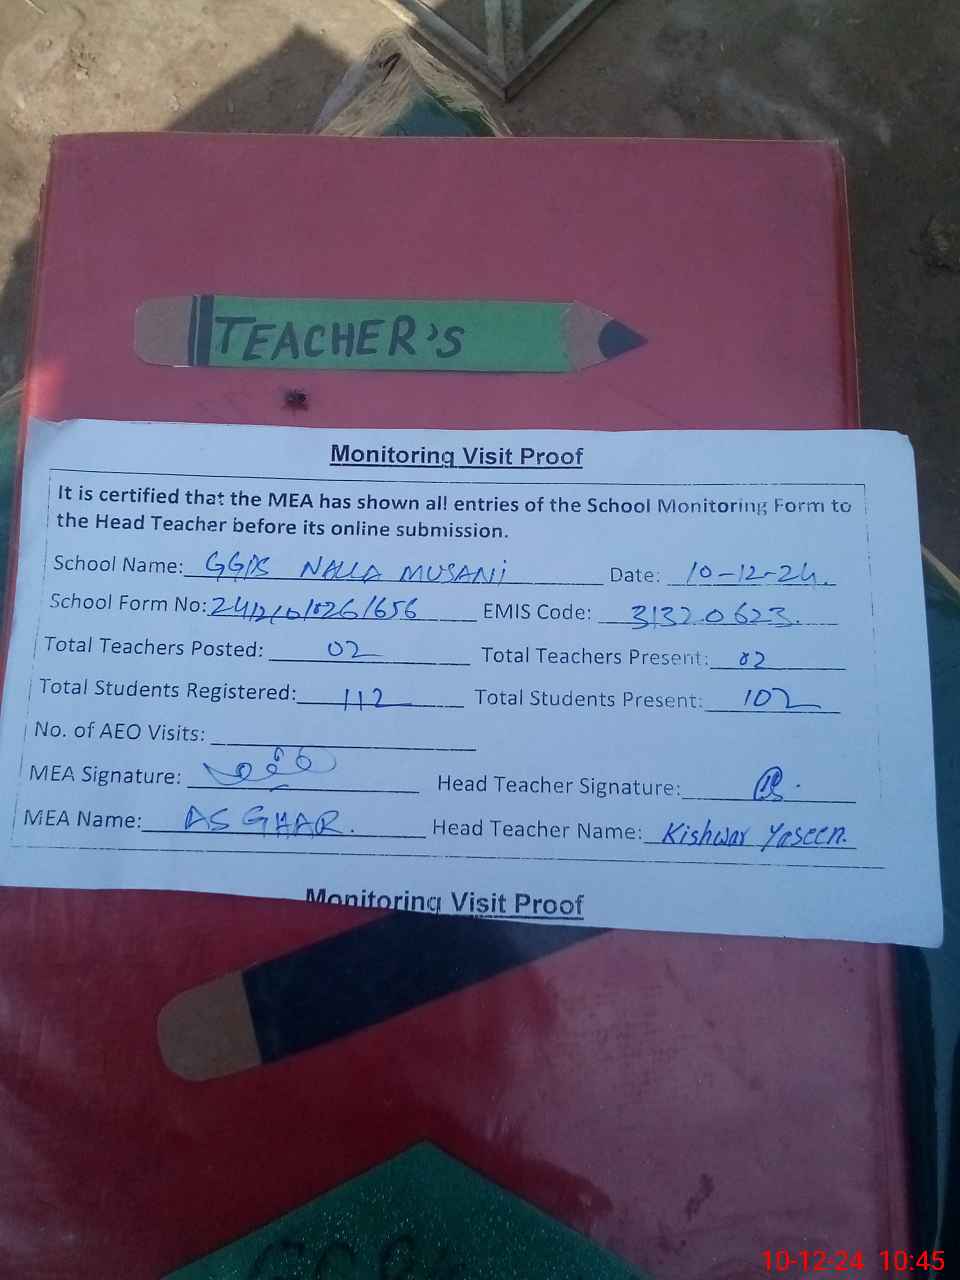 TEACHER'S
Monitoring Visit Proof
It is certified that the MEA has shown all entries of the School Monitoring Form to
the Head Teacher before its online submission.
School Name: GGPS NALLA MUSANi Date: 10-12-24.
School Form No: EMIS Code: 31320623.
Total Teachers Posted: 02 Total Teachers Present: 02
Total Students Registered: 112 Total Students Present: 102
No. of AEO Visits:
MEA Signature: Head Teacher Signature:
MEA Name: ASGHAR. Head Teacher Name: Kishwar Yaseen.
Monitoring Visit Proof
10-12-24 10:45